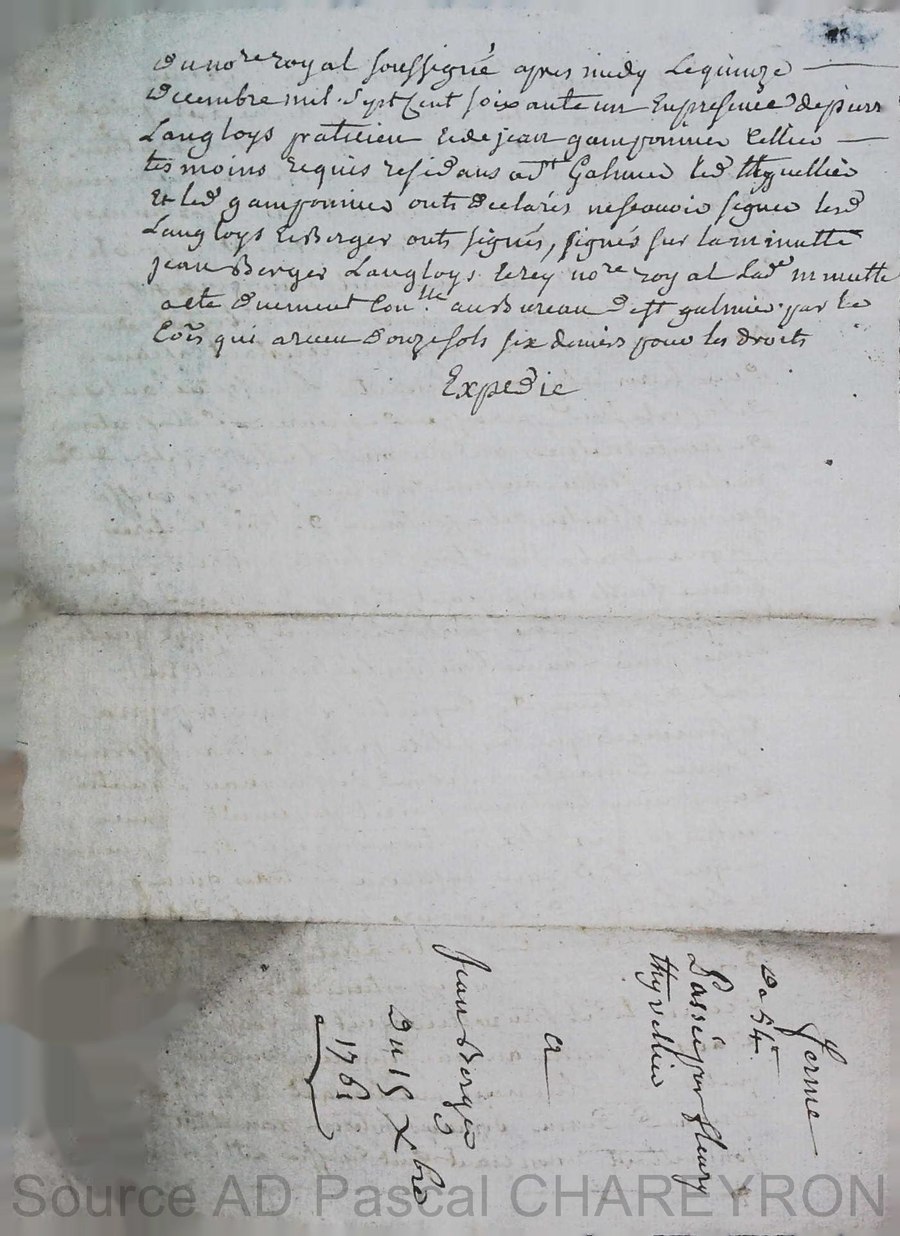 du no.re royal soussigné apres midy le quinze
decembre mil sept cent soixante un En presence de pierre
Langloys praticien et de jean gamponnier Cellier
tesmoins requis residans aud.t St Galmier led thyvellier
Et led gamponnier onts declarés ne scavoir signer lesd
Langloys et Berger onts signés, signés sur la minutte
jean Berger Langloys et rey no.re royal lad.e minutte
acte duement Con.llé au Bureau de st galmier par le
Co.is qui a receu douze sols six deniers pour les droits
Expedié
ferme
De 54#
Passée par fleury
thyvellier
a
Jean Berger
Du 15 Xbre
1761
Source AD Pascal CHAREYRON